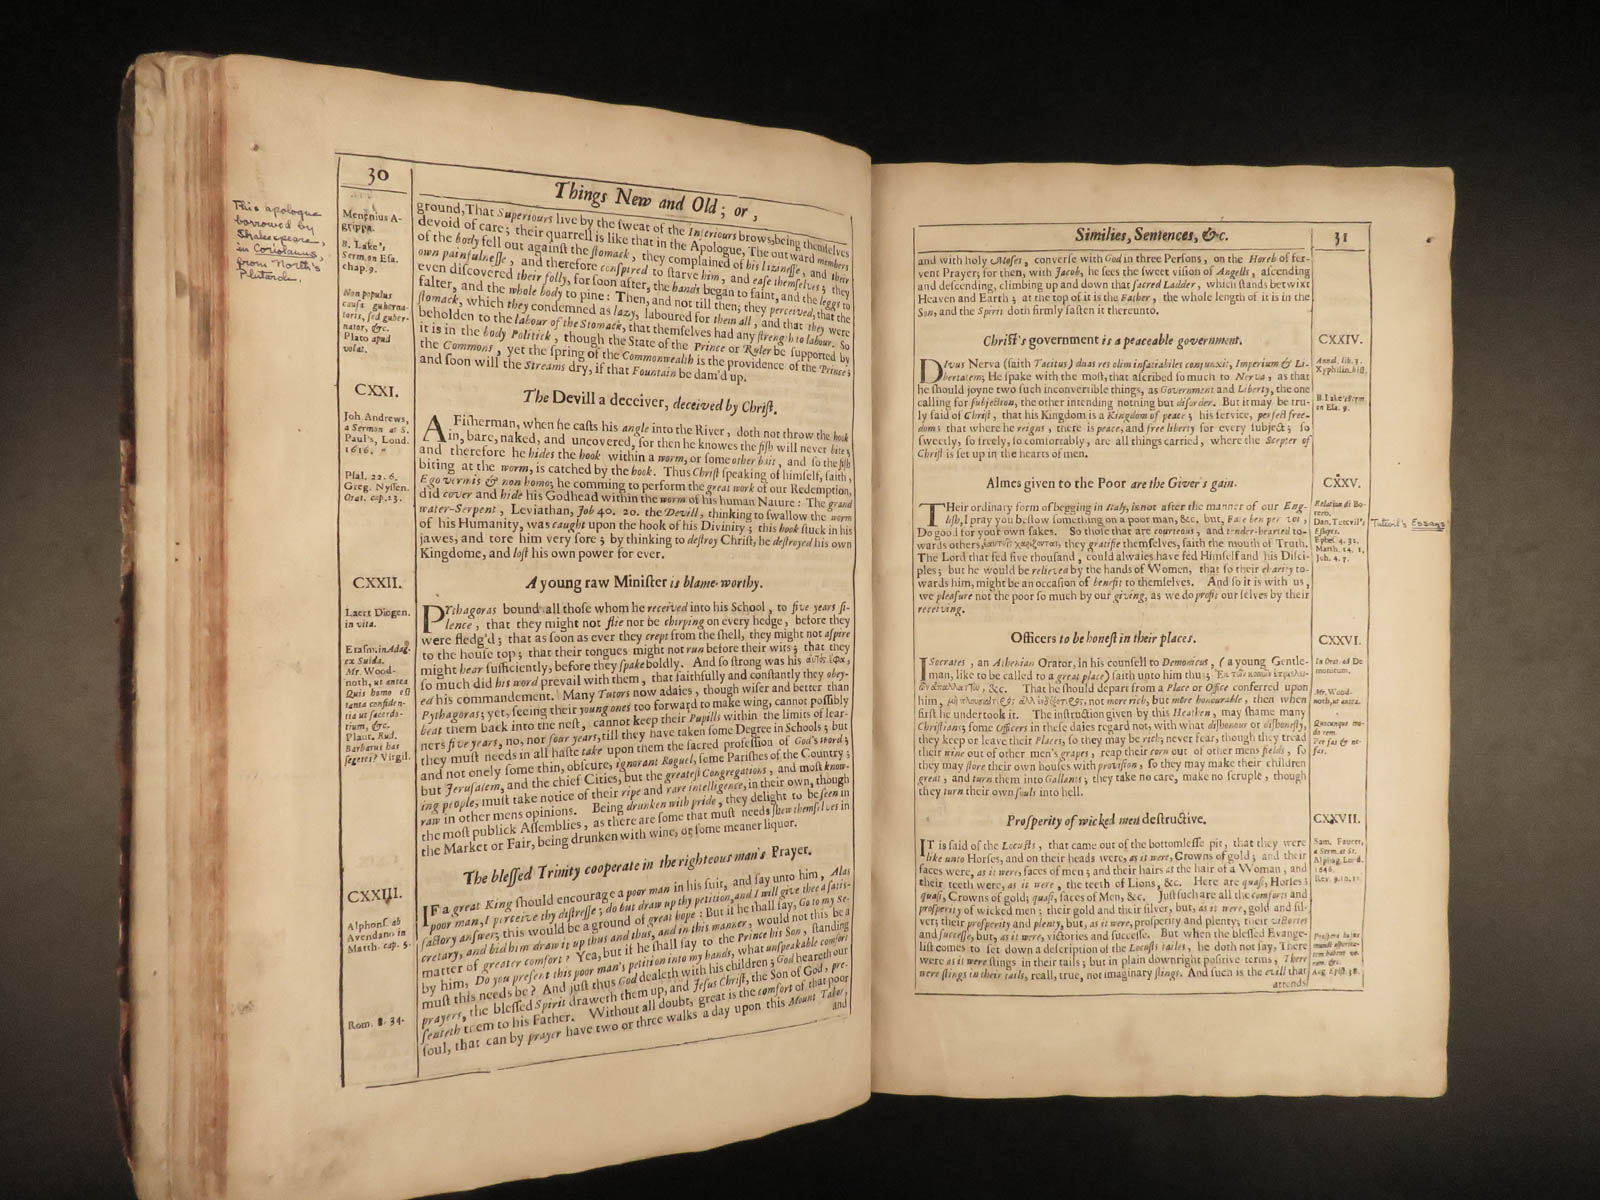 30
Things New and Old; or,
This apologue
borrowed by
Shakespeare,
in Coriolanus,
from North's
Plutarch.
Menenius A-
grippa.
B. Lake's,
Serm. on Esa.
chap. 9.
Non populus
causa guberna-
toris, sed guber-
nator, &c.
Plato apud
volat.
ground, That Superiours live by the sweat of the Inferiours brows, being themselves
devoid of care; their quarrell is like that in the Apologue, The outward members
of the body fell out against the stomack, they complained of his lizinesse, and their
own painfulnesse, and therefore conspired to starve him, and ease themselves; they
even discovered their folly, for soon after, the hands began to faint, and the leggs to
falter, and the whole body to pine: Then, and not till then; they perceived, that the
stomack, which they condemned as lazy, laboured for them all, and that they were
beholden to the labour of the Stomack, that themselves had any strength to labour. So
it is in the body Politick, though the State of the Prince or Ruler be supported by
the Commons, yet the spring of the Commonwealth is the providence of the Prince;
and soon will the Streams dry, if that Fountain be dam'd up.
CXXI.
The Devill a deceiver, deceived by Christ.
Joh. Andrews,
a Sermon at S.
Paul's, Lond.
1616.
Psal. 22. 6.
Greg. Nyssen.
Orat. cap. 23.
A Fisherman, when he casts his angle into the River, doth not throw the hook
in, bare, naked, and uncovered, for then he knowes the fish will never bite;
and therefore he hides the hook within a worm, or some other bait, and so the fish
biting at the worm, is catched by the hook. Thus Christ speaking of himself, saith,
Ego vermis & non homo; he comming to perform the great work of our Redemption,
did cover and hide his Godhead within the worm of his human Nature: The grand
water-Serpent, Leviathan, Job 40. 20. the Devill, thinking to swallow the worm
of his Humanity, was caught upon the hook of his Divinity; this hook stuck in his
jawes, and tore him very sore; by thinking to destroy Christ, he destroyed his own
Kingdome, and lost his own power for ever.
CXXII.
A young raw Minister is blame-worthy.
Laert Diogen.
in vita.
Erasm. in Adag.
ex Suida.
Mr. Wood-
noth, ut antea
Quis homo est
tanta confiden-
tia ut sacerdo-
tium, &c.
Plaut. Rud.
Barbarus has
segetes? Virgil.
Pythagoras bound all those whom he received into his School, to five years si-
lence, that they might not flie nor be chirping on every hedge, before they
were fledg'd; that as soon as ever they crept from the shell, they might not aspire
to the house top; that their tongues might not run before their wits; that they
might hear sufficiently, before they spake boldly. And so strong was his αὐτὸς ἔφα,
so much did his word prevail with them, that faithfully and constantly they obey-
ed his commandement. Many Tutors now adaies, though wiser and better than
Pythagoras; yet, seeing their young ones too forward to make wing, cannot possibly
beat them back into the nest, cannot keep their Pupills within the limits of lear-
ners five years, no, nor four years, till they have taken some Degree in Schools; but
they must needs in all haste take upon them the sacred profession of God's word;
and not onely some thin, obscure, ignorant Roguel, some Parishes of the Country;
but Jerusalem, and the chief Cities, but the greatest Congregations, and most know-
ing people, must take notice of their ripe and rare intelligence, in their own, though
raw in other mens opinions. Being drunken with pride, they delight to be seen in
the most publick Assemblies, as there are some that must needs shew themselves in
the Market or Fair, being drunken with wine, or some meaner liquor.
CXXIII.
The blessed Trinity cooperate in the righteous man's Prayer.
Alphons. ab
Avendano in
Matth. cap. 5.
Rom. 8. 34.
IF a great King should encourage a poor man in his suit, and say unto him, Alas
poor man, I perceive thy distresse; do but draw up thy petition, and I will give thee a satis-
factory answer; this would be a ground of great hope: But if he shall say, Go to my Se-
cretary, and bid him draw it up thus and thus, and in this manner, would not this be a
matter of greater comfort? Yea, but if he shall say to the Prince his Son, standing
by him, Do you present this poor man's petition into my hands, what unspeakable comfort
must this needs be? And just thus God dealeth with his children; God heareth our
prayers, the blessed Spirit draweth them up, and Jesus Christ, the Son of God, pre-
senteth them to his Father. Without all doubt, great is the comfort of that poor
soul, that can by prayer have two or three walks a day upon this Mount Tabor,
and
Similies, Sentences, &c.
31
and with holy Moses, converse with God in three Persons, on the Horeb of fer-
vent Prayer; for then, with Jacob, he sees the sweet vision of Angells, ascending
and descending, climbing up and down that sacred Ladder, which stands betwixt
Heaven and Earth; at the top of it is the Father, the whole length of it is in the
Son, and the Spirit doth firmly fasten it thereunto.
Christ's government is a peaceable government.
CXXIV.
Annal. lib. 1.
Xyphilin. hist.
B. Lake's Serm.
on Esa. 9.
DIvus Nerva (saith Tacitus) duas res olim insatiabiles conjunxit, Imperium & Li-
bertatem; He spake with the most, that ascribed so much to Nerva, as that
he should joyne two such inconvertible things, as Government and Liberty, the one
calling for subjection, the other intending nothing but disorder. But it may be tru-
ly said of Christ, that his Kingdom is a Kingdom of peace; his service, perfect free-
dom; that where he reigns, there is peace, and free liberty for every subject; so
sweetly, so freely, so comfortably, are all things carried, where the Scepter of
Christ is set up in the hearts of men.
Almes given to the Poor are the Giver's gain.
CXXV.
Relation di Bo-
tero.
Dan. Tutevil's
Essayes.
Ephes. 4. 32.
Matth. 14. 1.
Joh. 4. 7.
Tutevil's Essays
THeir ordinary form of begging in Italy, is not after the manner of our Eng-
lish, I pray you bestow something on a poor man, &c. but, Fate ben per voi,
Do good for your own sakes. So those that are courteous, and tender-hearted to-
wards others, ἑαυτοῖς χαρίζονται, they gratifie themselves, saith the mouth of Truth.
The Lord that fed five thousand, could alwaies have fed Himself and his Disci-
ples; but he would be relieved by the hands of Women, that so their charity to-
wards him, might be an occasion of benefit to themselves. And so it is with us,
we pleasure not the poor so much by our giving, as we do profit our selves by their
receiving.
Officers to be honest in their places.
CXXVI.
In Orat. ad De
monicum.
Mr. Wood-
noth, ut antea.
Quocunque mo-
do rem.
Per fas & ne-
fas.
ISocrates, an Athenian Orator, in his counsell to Demonicus, (a young Gentle-
man, like to be called to a great place) saith unto him thus; Ἐκ τῶν κοινῶν ἐπιμελει-
ῶν ἀπαλλάττου, &c. That he should depart from a Place or Office conferred upon
him, μὴ πλουσιώτερος ἀλλ' ἐνδοξότερος, not more rich, but more honourable, then when
first he undertook it. The instruction given by this Heathen, may shame many
Christians; some Officers in these daies regard not, with what dishonour or dishonesty,
they keep or leave their Places, so they may be rich; never fear, though they tread
their wine out of other men's grapes, reap their corn out of other mens fields, so
they may store their own houses with provision, so they may make their children
great, and turn them into Gallants; they take no care, make no scruple, though
they turn their own souls into hell.
Prosperity of wicked men destructive.
CXXVII.
Sam. Fawcet,
a Serm. at St.
Alphag. Lond.
1646.
Rev. 9. 10, 11.
Prospera hujus
mundi asperita-
tem habent ve-
ram, &c.
Aug. Epist. 38.
IT is said of the Locusts, that came out of the bottomlesse pit, that they were
like unto Horses, and on their heads were, as it were, Crowns of gold; and their
faces were, as it were, faces of men; and their hairs as the hair of a Woman, and
their teeth were, as it were, the teeth of Lions, &c. Here are quasi, Horses;
quasi, Crowns of gold; quasi, faces of Men, &c. Just such are all the comforts and
prosperity of wicked men; their gold and their silver, but, as it were, gold and sil-
ver; their prosperity and plenty, but, as it were, prosperity and plenty; their victories
and successe, but, as it were, victories and successe. But when the blessed Evange-
list comes to set down a description of the Locusts tailes, he doth not say, There
were as it were stings in their tails; but in plain downright positive terms, There
were stings in their tails, reall, true, not imaginary stings. And such is the evill that
attends